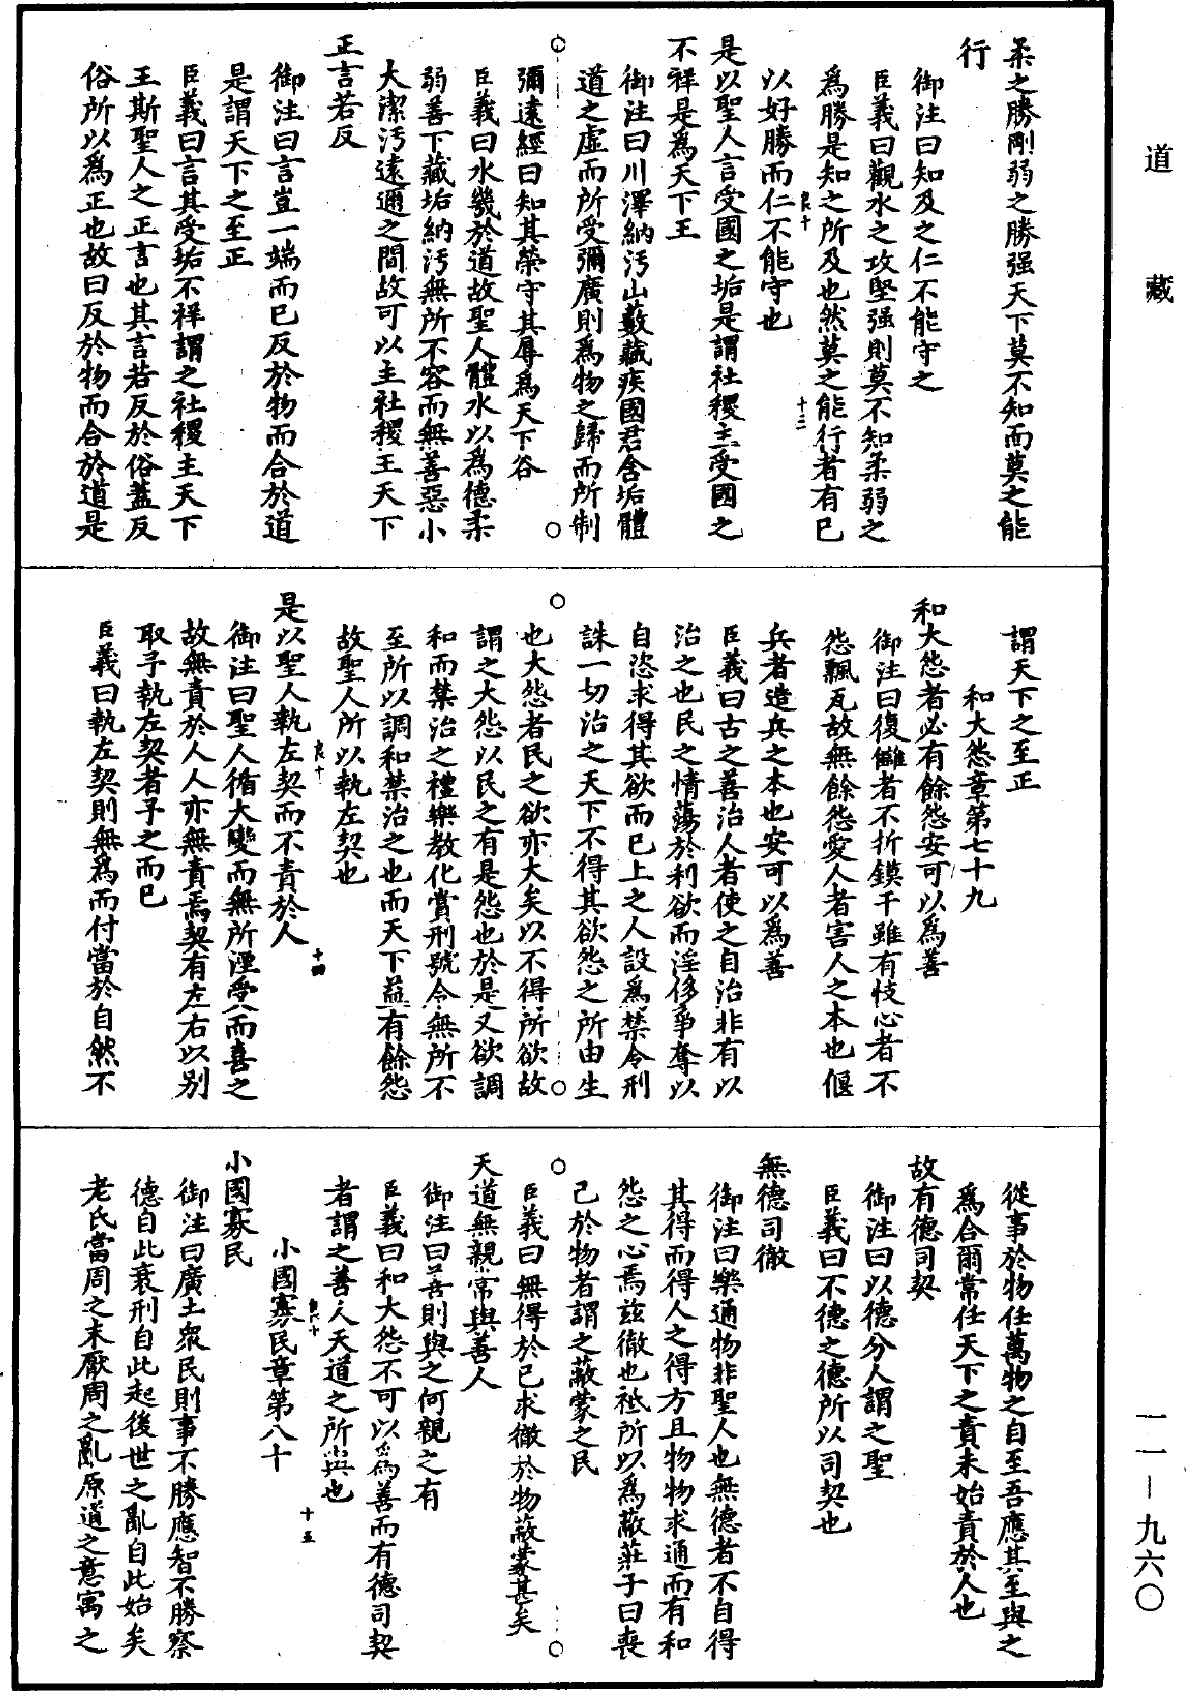 道藏
柔之勝剛弱之勝强天下莫不知而莫之能
行
御注曰知及之仁不能守之
臣義曰觀水之攻堅强則莫不知柔弱之
爲勝是知之所及也然莫之能行者有已
以好勝而仁不能守也
十三
是以聖人言受國之垢是謂社稷主受國之
不祥是爲天下王
御注曰川澤納污山藪藏疾國君含垢體
道之虛而所受彌廣則爲物之歸而所制
彌遠經曰知其榮守其辱爲天下谷
臣義曰水幾於道故聖人體水以爲德柔
弱善下藏垢納污無所不容而無善惡小
大潔污遠邇之間故可以主社稷王天下
正言若反
御注曰言豈一端而已反於物而合於道
是謂天下之至正
臣義曰言其受垢不祥謂之社稷主天下
王斯聖人之正言也其言若反於俗蓋反
俗所以爲正也故曰反於物而合於道是
謂天下之至正
和大怨章第七十九
和大怨者必有餘怨安可以爲善
御注曰復讎者不折鏌干雖有忮心者不
怨飄瓦故無餘怨愛人者害人之本也偃
兵者造兵之本也安可以爲善
臣義曰古之善治人者使之自治非有以
治之也民之情蕩於利欲而淫侈爭奪以
自恣求得其欲而已上之人設爲禁令刑
誅一切治之天下不得其欲怨之所由生
也大怨者民之欲亦大矣以不得所欲故
謂之大怨以民之有是怨也於是又欲調
和而禁治之禮樂教化賞刑號令無所不
至所以調和禁治之也而天下益有餘怨
故聖人所以執左契也
十四
是以聖人執左契而不責於人
御注曰聖人循大變而無所湮受而喜之
故無責於人人亦無責焉契有左右以別
取予執左契者予之而已
臣義曰執左契則無爲而付當於自然不
從事於物任萬物之自至吾應其至與之
爲合爾常任天下之責未始責於人也
故有德司契
御注曰以德分人謂之聖
臣義曰不德之德所以司契也
無德司徹
御注曰樂通物非聖人也無德者不自得
其得而得人之得方且物物求通而有和
怨之心焉茲徹也祗所以爲蔽莊子曰喪
己於物者謂之蔽蒙之民
臣義曰無得於己求徹於物蔽蒙甚矣
天道無親常與善人
御注曰善則與之何親之有
臣義曰和大怨不可以爲善而有德司契
者謂之善人天道之所與也
十五
小國寡民章第八十
小國寡民
御注曰廣土衆民則事不勝應智不勝察
德自此衰刑自此起後世之亂自此始矣
老氏當周之末厭周之亂原道之意寓之
一一－九六〇